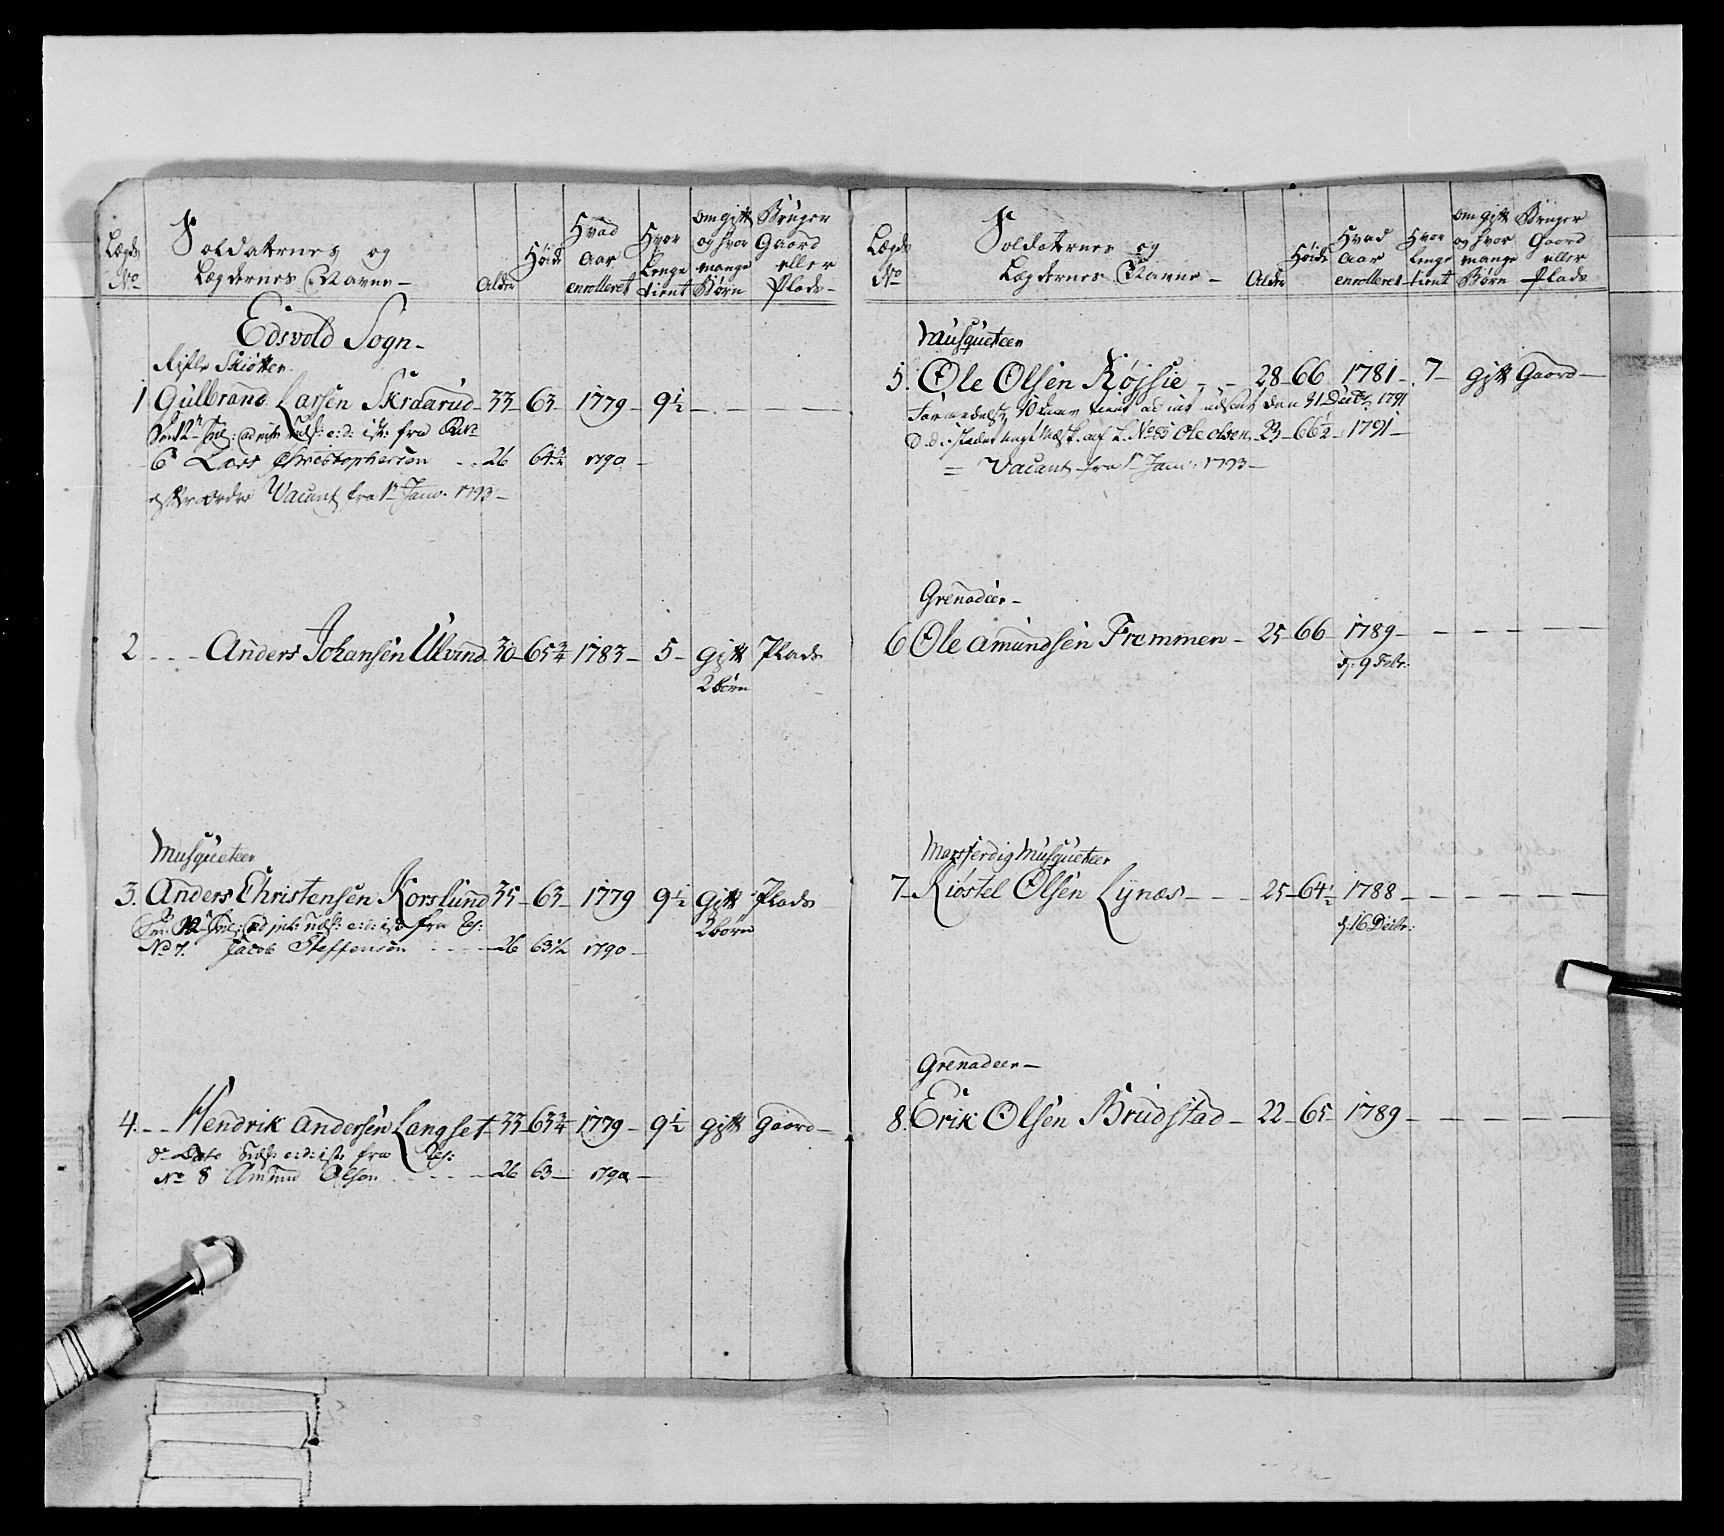 Lægds No
Soldaternes og Lægdernes Navne -
Alder
Höide
Hvad Aar enrolleret
Hvor Lenge tient
om gift og hvor mange Börn
Bruger Gaard eller Plads -
Edsvold Sogn -
Rifle Skiötter
1 Gulbrand Larsen Skraarud - 33 - 63 - 1779 - 9½ - - -
6 Lars Christophersen - - 26 64¾ 1790 -
Vacant fra 1te Janv: 1793 -
2 - - - Anders Johansen Ulvind 30 - 65¾ 1783 - 5 - gift Plads
2 börn
Musqueteer
3. Anders Christensen Korslund 35 - 63 - 1779 9½ gift Plads
2 börn
No 7. Jacob Steffensen - - - 26 63½ 1790 -
4. - - Hendrik Andersen Langset 33 - 63¾ 1779 - 9½ gift Gaard -
No 8 Amund Olsen - - - 26 63 - 1790 -
Lægds No
Soldaternes og Lægdernes Navne -
Alder
Höide
Hvad Aar enrolleret
Hvor Lenge tient
om gift og hvor mange Börn
Brüger Gaard eller Plads
Musqueteer
5. Ole Olsen Röjsie - - 28 - 66 1781 - 7 - gift Gaard -
tient den 31 Decbr 1791
L. No 85 Ole Olsen, 23 - 66½ - 1791 -
= Vacant fra 1te Janv: 1793 -
Grenadeer -
6 Ole Amundsen Frommen - 25 - 66 - 1789 - - - -
d: 9 Febr:
Marsferdig Musqueteer
7 - Kiöstel Olsen Lÿnæs - - - 25 - 64½ - 1788 - - - -
d. 16 Decbr:
Grenadeer -
8. Erik Olsen Brudstad - 22 - 65 - 1789 - - - -